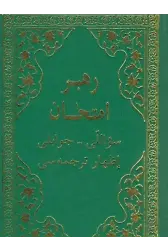 رهبر
امتحانا
سؤالی - جوابلی
اظهار ترجمه سی